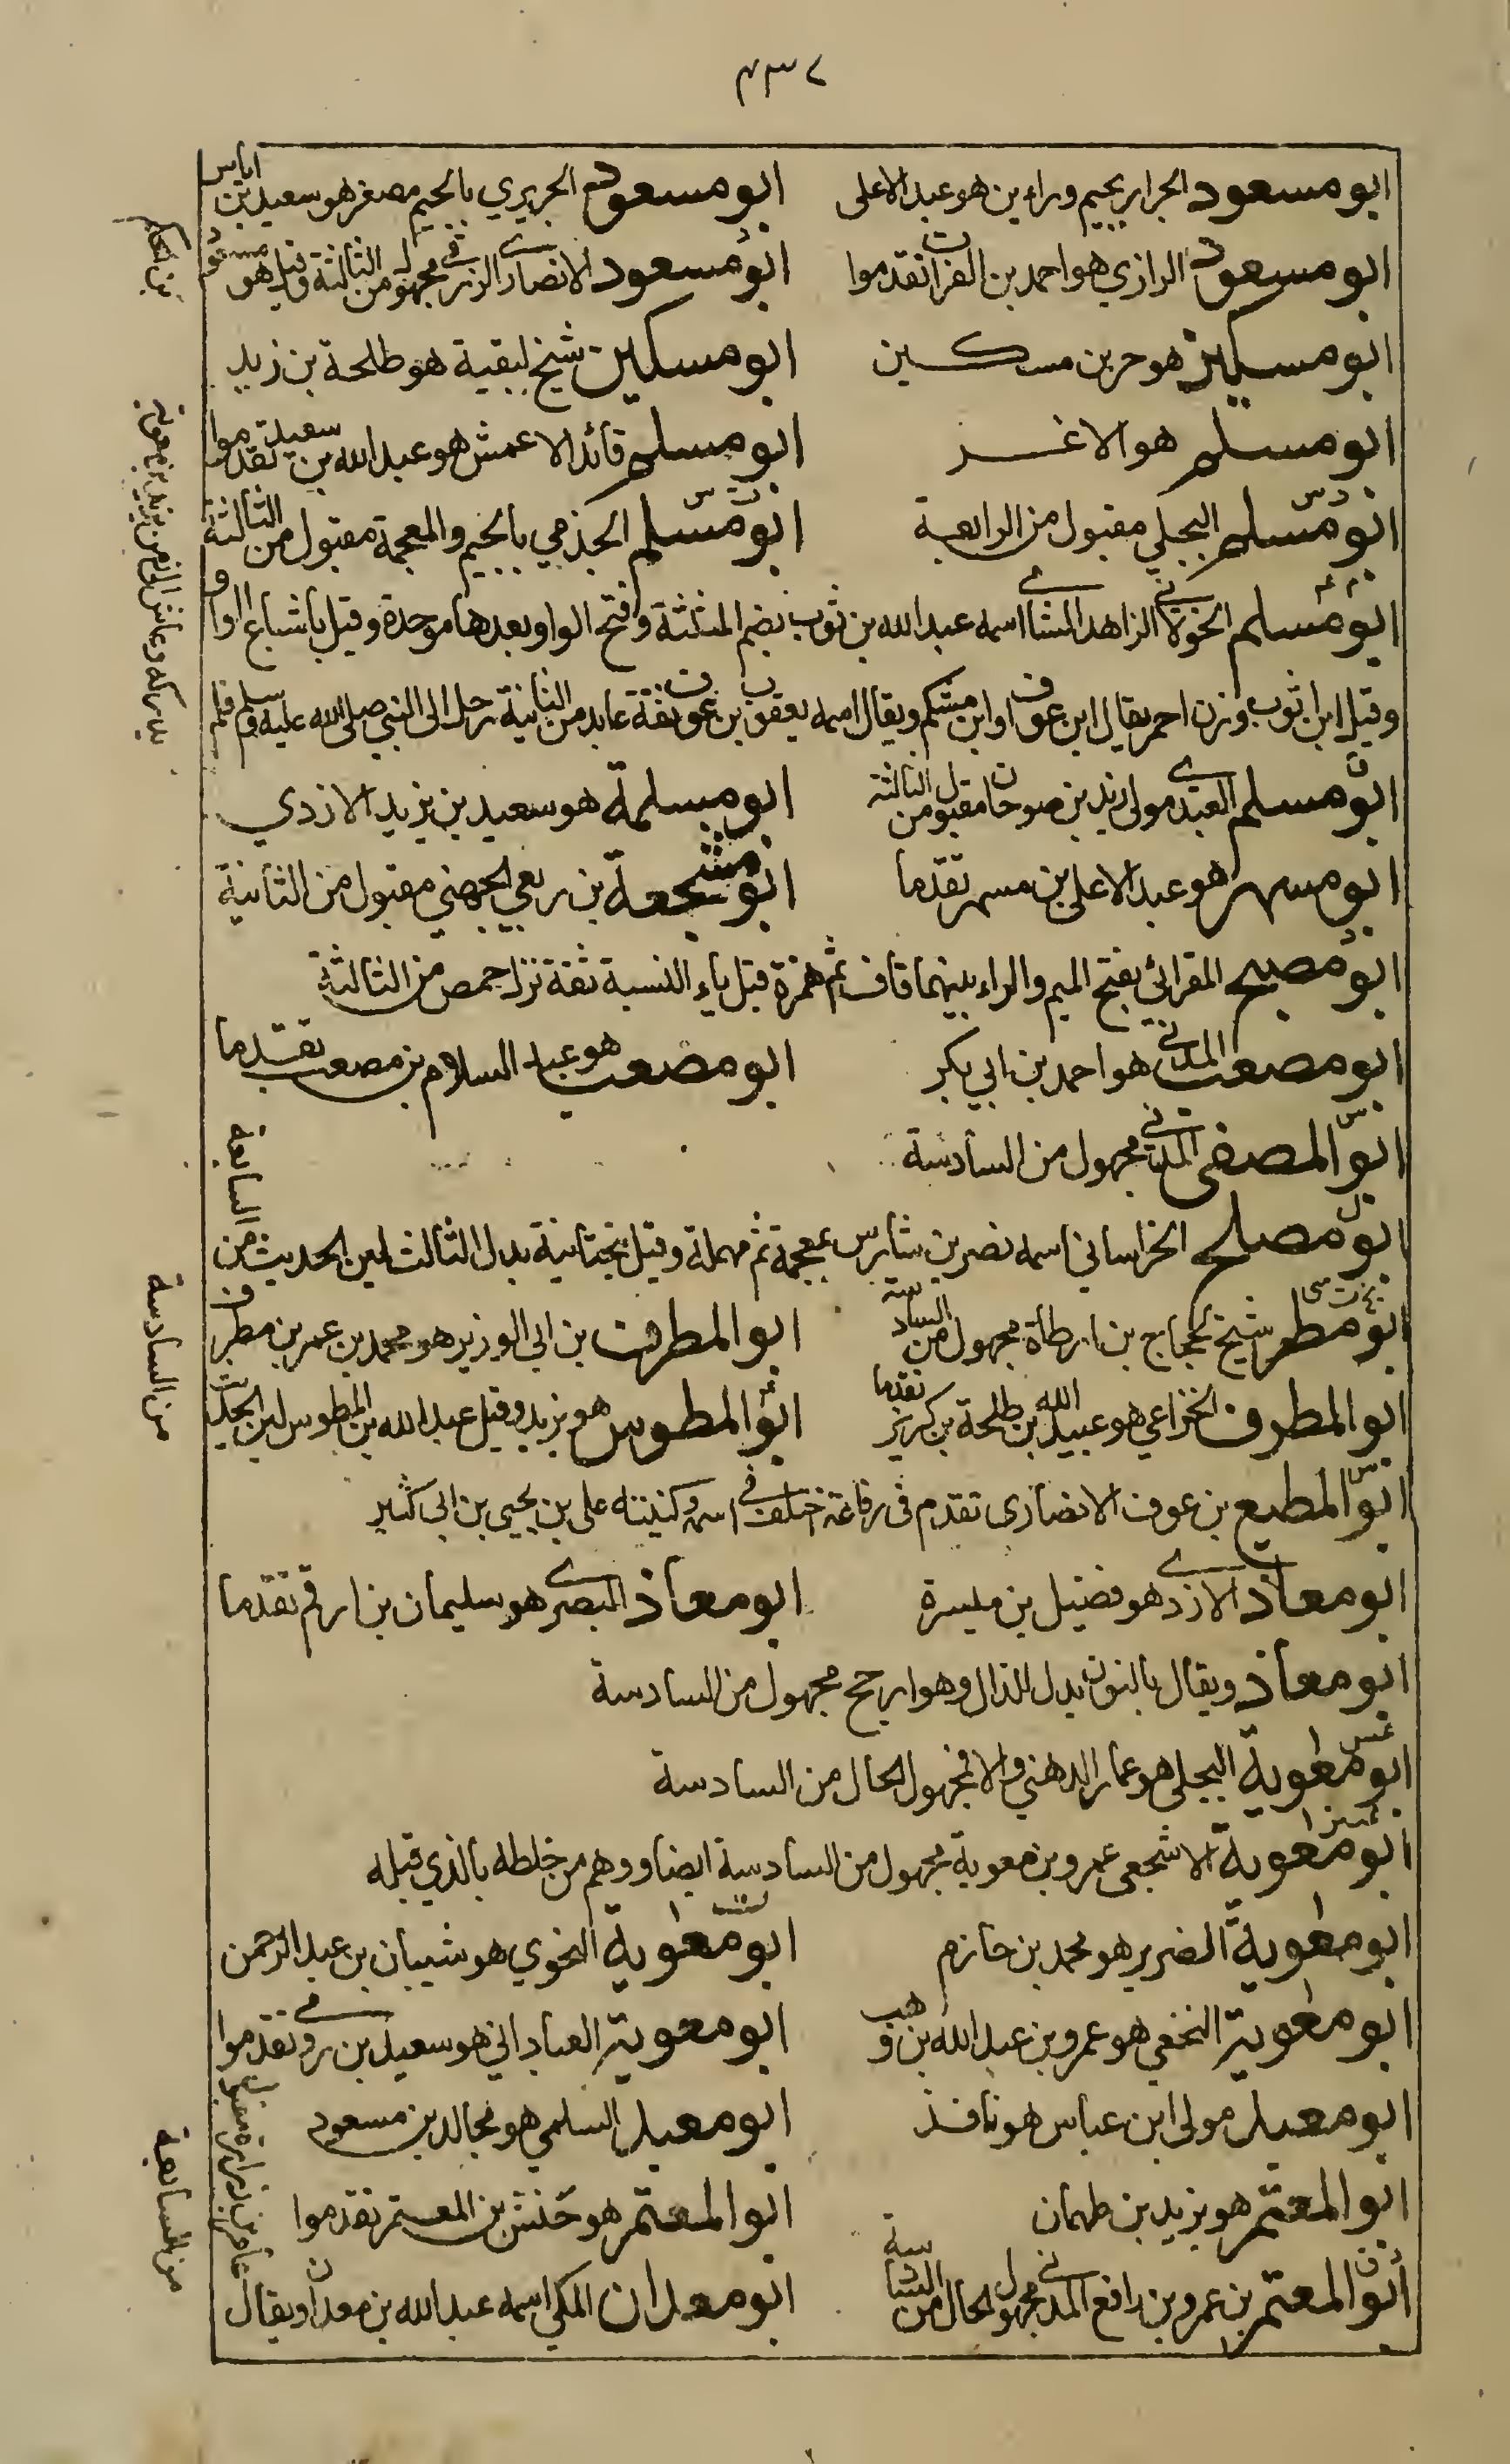 ٤٣٧
ابو مسعود الجرار بجيم وراءين هو عبد الاعلى
ابو مسعود الجريري بالجيم مصغر هو سعيد بن اياس
ابو مسعود الرازي هو احمد بن الفرات تقدموا
ابو مسعود الانصاري الزرقي مجهول من الثالثة وقيل هو مسعود
بن الحكم
ابو مسكين هو حر بن مسكين
ابو مسكين شيخ لبقية هو طلحة بن زيد
ابو مسلم هو الاغر
ابو مسلم قائد الاعمش هو عبد الله بن سعيد تقدموا
ابو مسلم البجلي مقبول من الرابعة
ابو مسلم الجذمي بالجيم والمعجمة مقبول من الثالثة
ابو مسلم الخولاني الزاهد الشامي اسمه عبد الله بن ثوب بضم المثلثة وفتح الواو بعدها موحدة وقيل باشباع الواو
وقيل ابن اثوب وزن احمر يقال ابن عوف او ابن مشكم ويقال اسمه يعقوب بن عوف ثقة عابد من الثانية رحل الى النبي صلى الله عليه وسلم فلم
يدركه وعاش الى زمن يزيد بن معوية
ابو مسلم العبدي مولى زيد بن صوحان مقبول من الثالثة
ابو مسلمة هو سعيد بن يزيد الازدي
ابو مسهر هو عبد الاعلى بن مسهر تقدما
ابو مشجعة بن ربعي الجهني مقبول من الثانية
ابو مصبح المقرائي بفتح الميم والراء بينهما قاف ثم همزة قبل ياء النسبة ثقة نزل حمص من الثالثة
ابو مصعب المدني هو احمد بن ابي بكر
ابو مصعب هو عبد السلام بن مصعب تقدما
ابو المصفى المدني مجهول من السادسة
ابو مصلح الخراساني اسمه نصر بن شارس بمعجمة ثم مهملة وقيل بتحتانية بدل الثالث لين الحديث من
السابعة
ابو مطر شيخ لحجاج بن ارطاة مجهول من السادسة
ابو المطرف بن ابي الوزير هو محمد بن عمر بن مطرف
ابو المطرف الخزاعي هو عبيد الله بن طلحة بن كريز تقدما
ابو المطوس هو يزيد وقيل عبد الله بن المطوس لين الحديث
من السادسة
ابو المطيع بن عوف الانصارى تقدم فى رفاعة اختلف في اسمه وكنيته على بن يحيى بن ابى كثير
ابو معاذ الازدي هو فضيل بن ميسرة
ابو معاذ البصري هو سليمان بن ارقم تقدما
ابو معاذ ويقال بالنون بدل الذال وهو ارجح مجهول من السادسة
ابو معوية البجلي هو عمار الدهني والا فمجهول الحال من السادسة
ابو معوية الاشجعي عمرو بن معوية مجهول من السادسة ايضا ووهم من خلطه بالذي قبله
ابو معوية الضرير هو محمد بن خازم
ابو معوية النحوي هو شيبان بن عبد الرحمن
ابو معوية النخعي هو عمرو بن عبد الله بن وهب
ابو معوية العباداني هو سعيد بن زربي تقدموا
ابو معبد مولى ابن عباس هو نافذ
ابو معبد السلمي هو مجالد بن مسعود
ابو المعتمر هو يزيد بن طهمان
ابو المعتمر هو حنش بن المعتمر تقدموا
ابو المعتمر بن عمرو بن رافع المدني مجهول الحال من السادسة
ابو معدان المكي اسمه عبد الله بن معدان ويقال
عامر بن زرارة مقبول
من السابعة